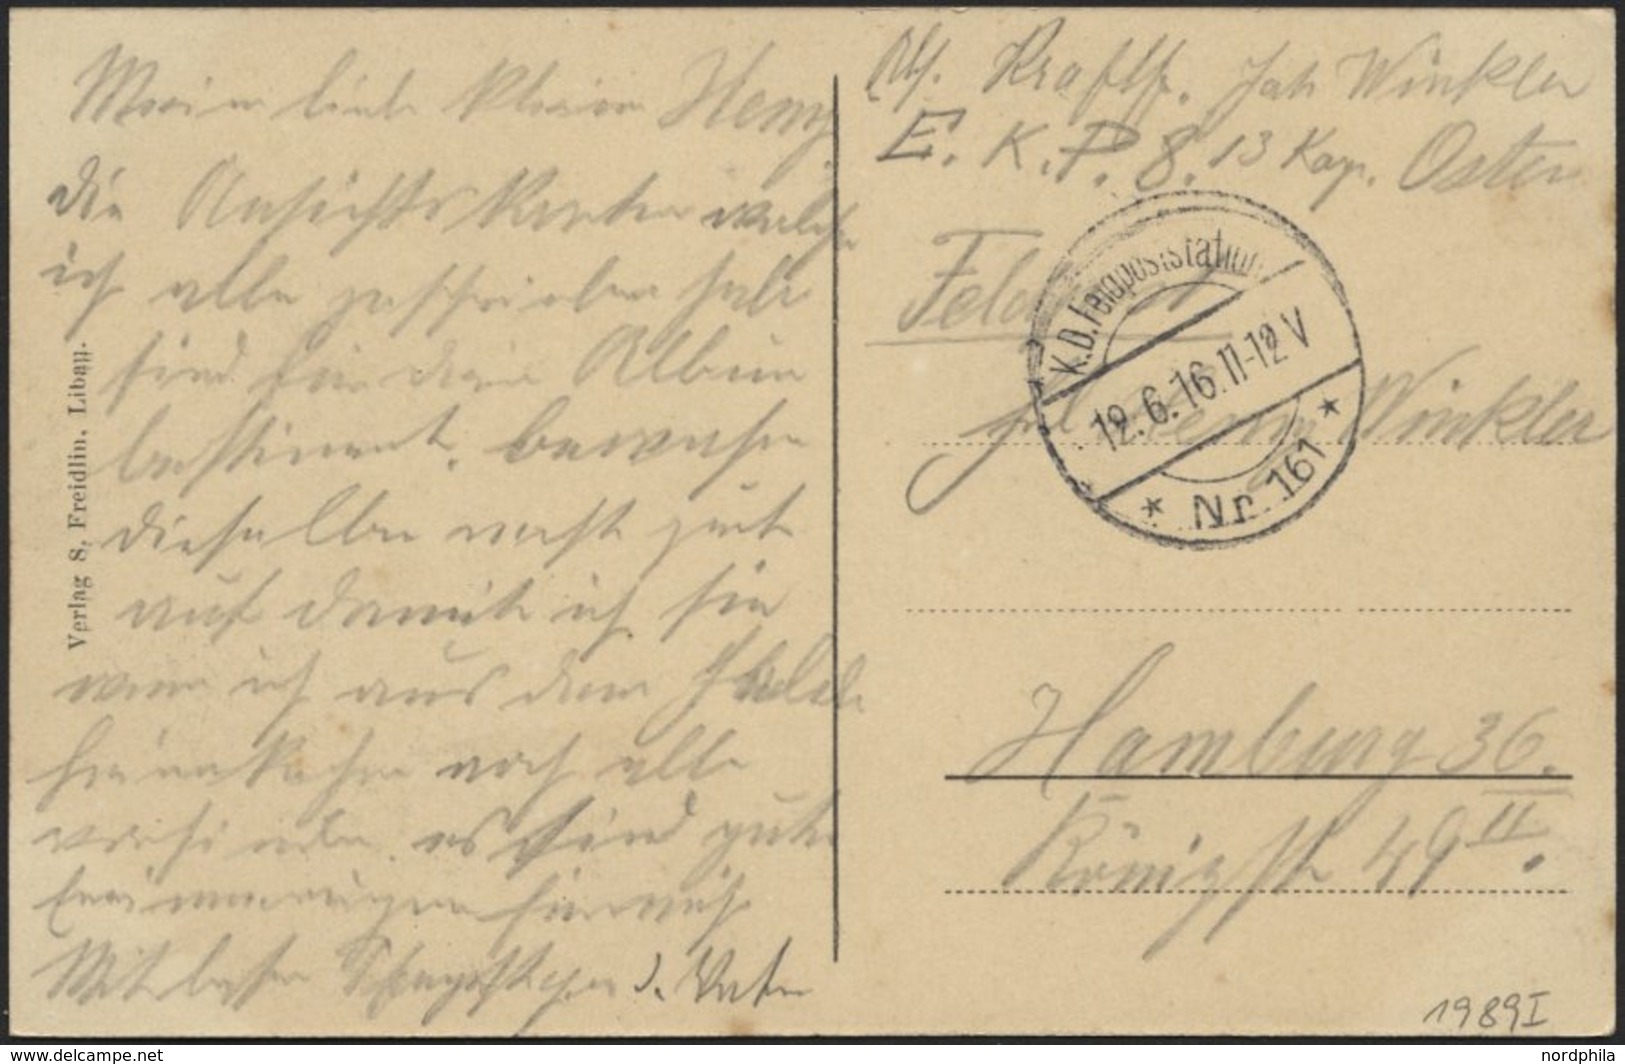 Mein liebe kleine Henny
die Ansichtskarten welche
ich alle geschrieben habe
sind für dein Album
bestimmt, bewahre
dieselben recht gut
auf damit ich sie
wenn ich aus dem Felde
heimkehre noch alle
vorfinde. es sind gute
Erinnerungen für mich
Mit besten d. Vater
Verlag S. Freidlin, Libau.
Abs. Kraftf. Joh Winkler
E. K. P. 8. 13 Kop. Osten
Feldpost
K.D. Feldpoststation
12.6.16.11-12 V
* Nr. 161 *
Frl Henny Winkler
Hamburg 36.
Königstr 49 II.
1989I
www.delcampe.net
nordphila